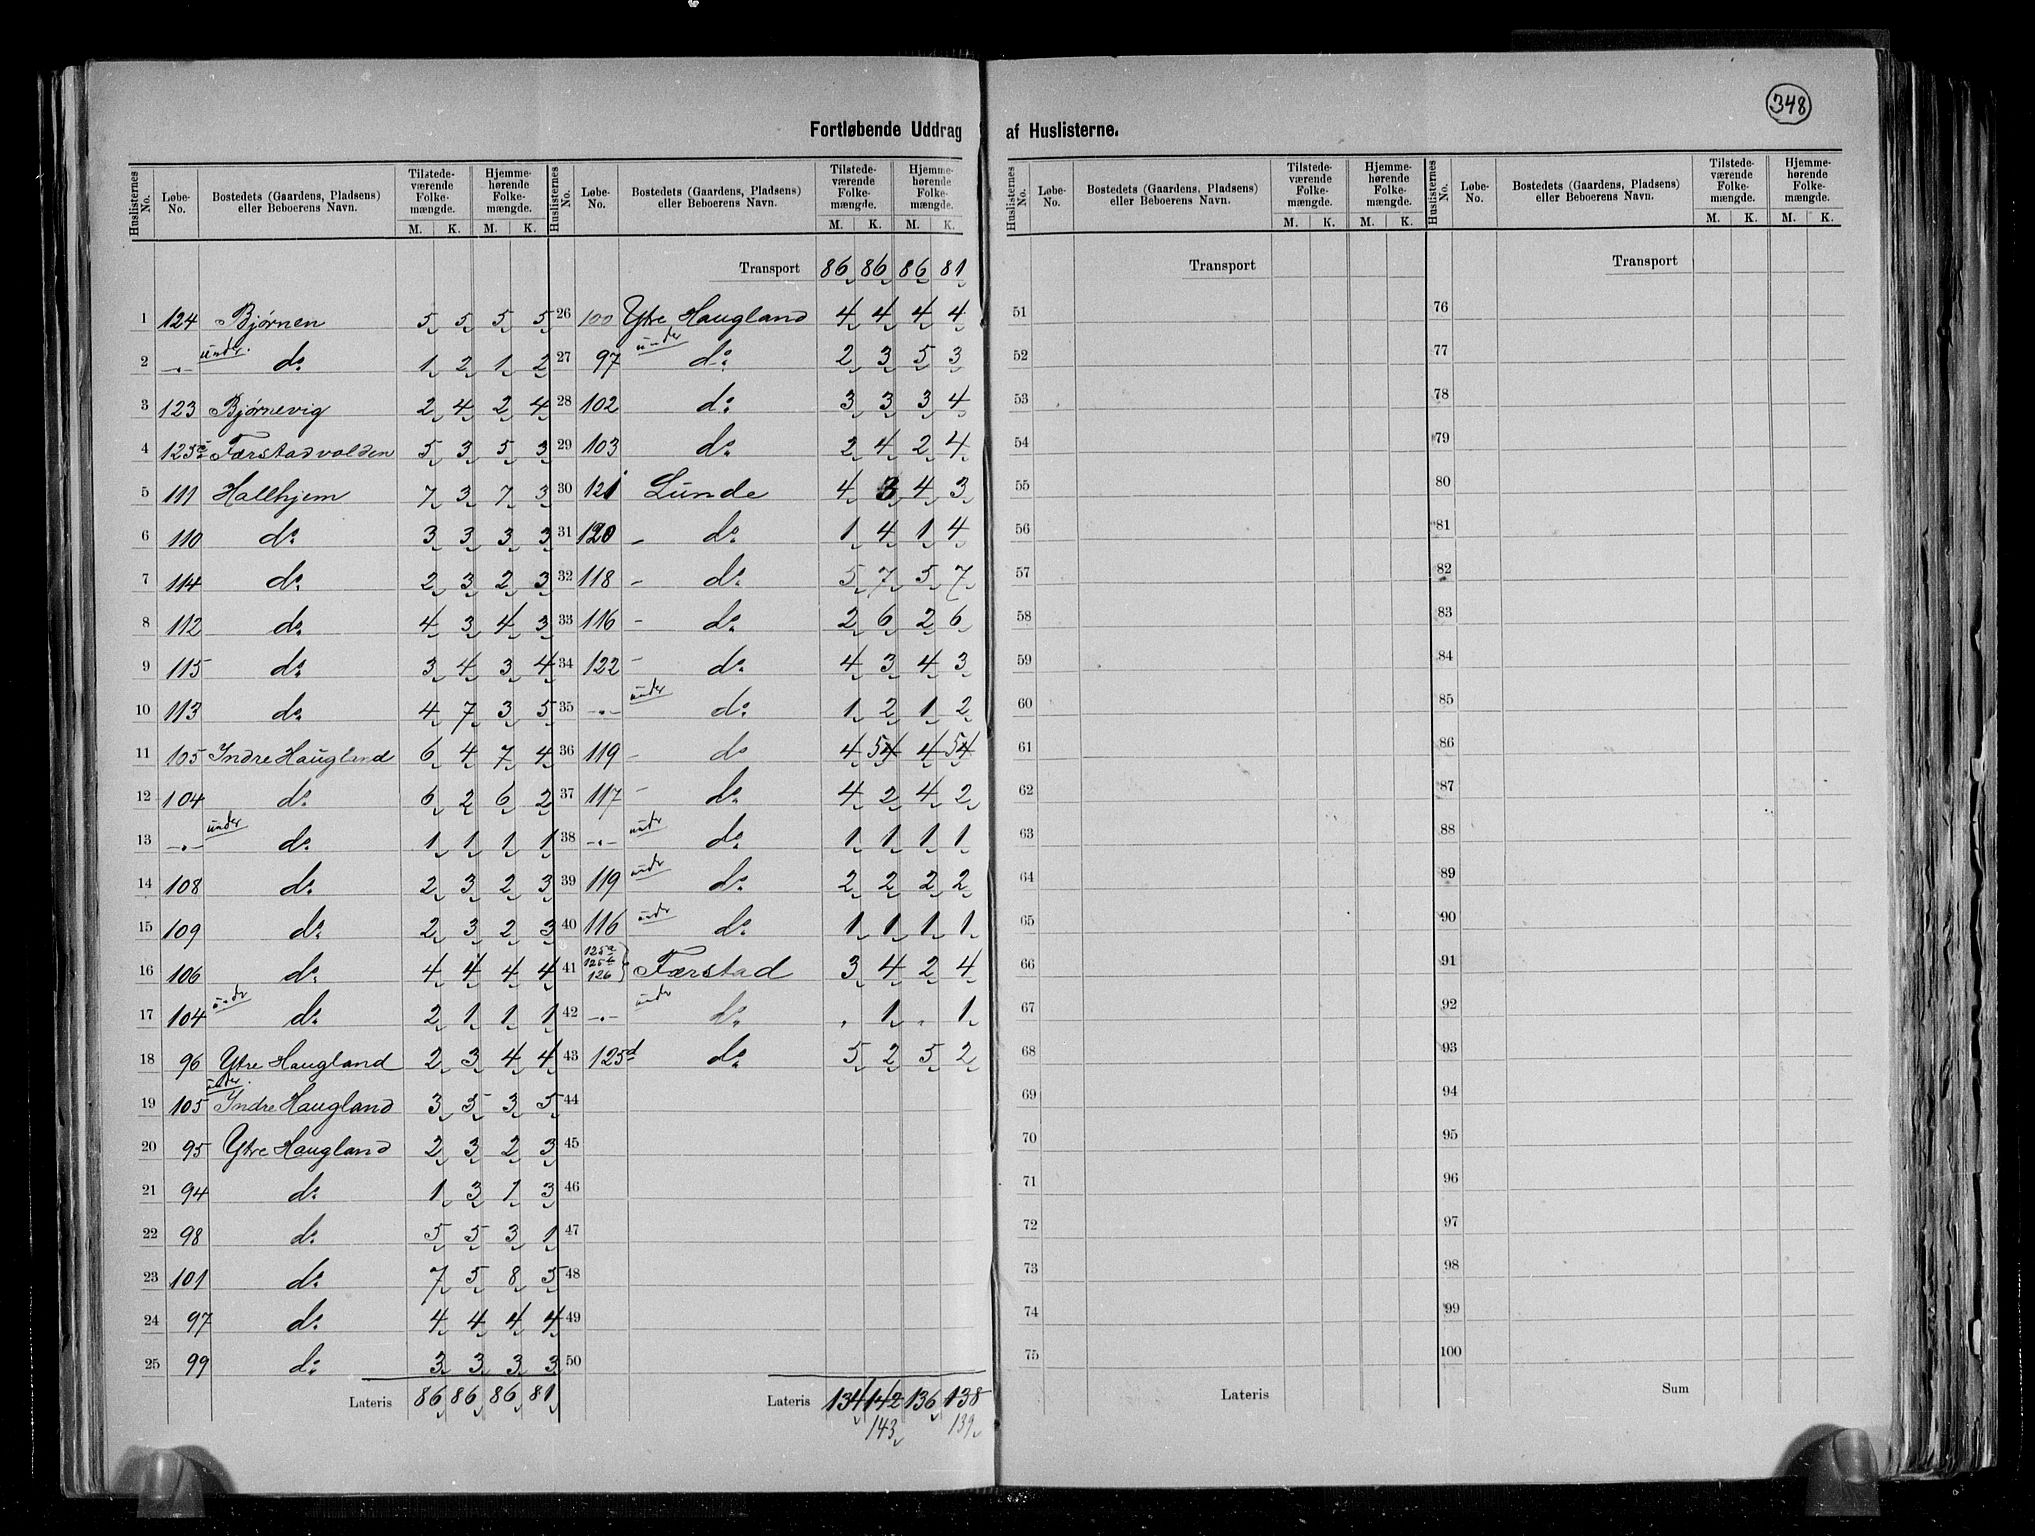 348
Fortløbende Uddrag af Huslisterne.
Huslisternes No. Løbe-No. Bostedets (Gaardens, Pladsens) eller Beboerens Navn. Tilstedeværende Folkemængde. M. K. Hjemmehørende Folkemængde. M. K.
1 124 Bjørnen 5 5 5 5
2 -„- under do 1 2 1 2
3 123 Bjørnevig 2 4 2 4
4 125a Færstadvolden 5 3 5 3
5 111 Hallhjem 7 3 7 3
6 110 do 3 3 3 3
7 114 do 2 3 2 3
8 112 do 4 3 4 3
9 115 do 3 4 3 4
10 113 do 4 7 3 5
11 105 Indre Haugland 6 4 7 4
12 104 do 6 2 6 2
13 -„- under do 1 1 1 1
14 108 do 2 3 2 3
15 109 do 2 3 2 3
16 106 do 4 4 4 4
17 104 under do 2 1 1 1
18 96 Ytre Haugland 2 3 4 4
19 105 under Indre Haugland 3 5 3 5
20 95 Ytre Haugland 2 3 2 3
21 94 do 1 3 1 3
22 98 do 5 5 3 1
23 101 do 7 5 8 5
24 97 do 4 4 4 4
25 99 do 3 3 3 3
Lateris 86 86 86 81
Huslisternes No. Løbe-No. Bostedets (Gaardens, Pladsens) eller Beboerens Navn. Tilstedeværende Folkemængde. M. K. Hjemmehørende Folkemængde. M. K.
Transport 86 86 86 81
26 100 Ytre Haugland 4 4 4 4
27 97 under do 2 3 5 3
28 102 do 3 3 3 4
29 103 do 2 4 2 4
30 121 Lunde 4 3 4 3
31 120 - do 1 4 1 4
32 118 - do 5 7 5 7
33 116 - do 2 6 2 6
34 122 - do 4 3 4 3
35 -„- under do 1 2 1 2
36 119 - do 4 5 4 4 5 4
37 117 - do 4 2 4 2
38 -„- under do 1 1 1 1
39 119 under do 2 2 2 2
40 116 under do 1 1 1 1
41 125a 125b 126 } Færstad 3 4 2 4
42 -„- under do . 1 . 1
43 125d do 5 2 5 2
44
45
46
47
48
49
50
Lateris 134 142 136 138
143 139
Huslisternes No. Løbe-No. Bostedets (Gaardens, Pladsens) eller Beboerens Navn. Tilstedeværende Folkemængde. M. K. Hjemmehørende Folkemængde. M. K.
Transport
51
52
53
54
55
56
57
58
59
60
61
62
63
64
65
66
67
68
69
70
71
72
73
74
75
Lateris
Huslisternes No. Løbe-No. Bostedets (Gaardens, Pladsens) eller Beboerens Navn. Tilstedeværende Folkemængde. M. K. Hjemmehørende Folkemængde. M. K.
Transport
76
77
78
79
80
81
82
83
84
85
86
87
88
89
90
91
92
93
94
95
96
97
98
99
100
Sum